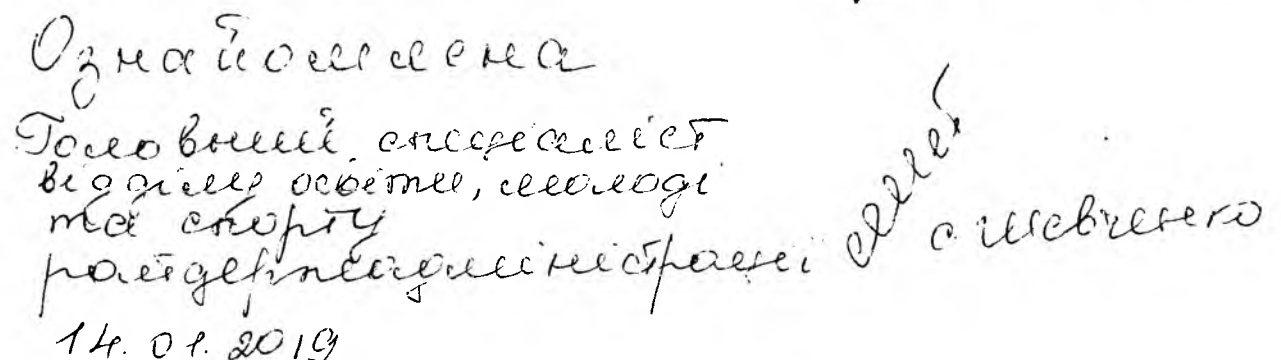 Ознайомлена
Головний спеціаліст
відділу освіти, молоді
та спорту
райдержадміністрації С. Шевченко
14.01.2019